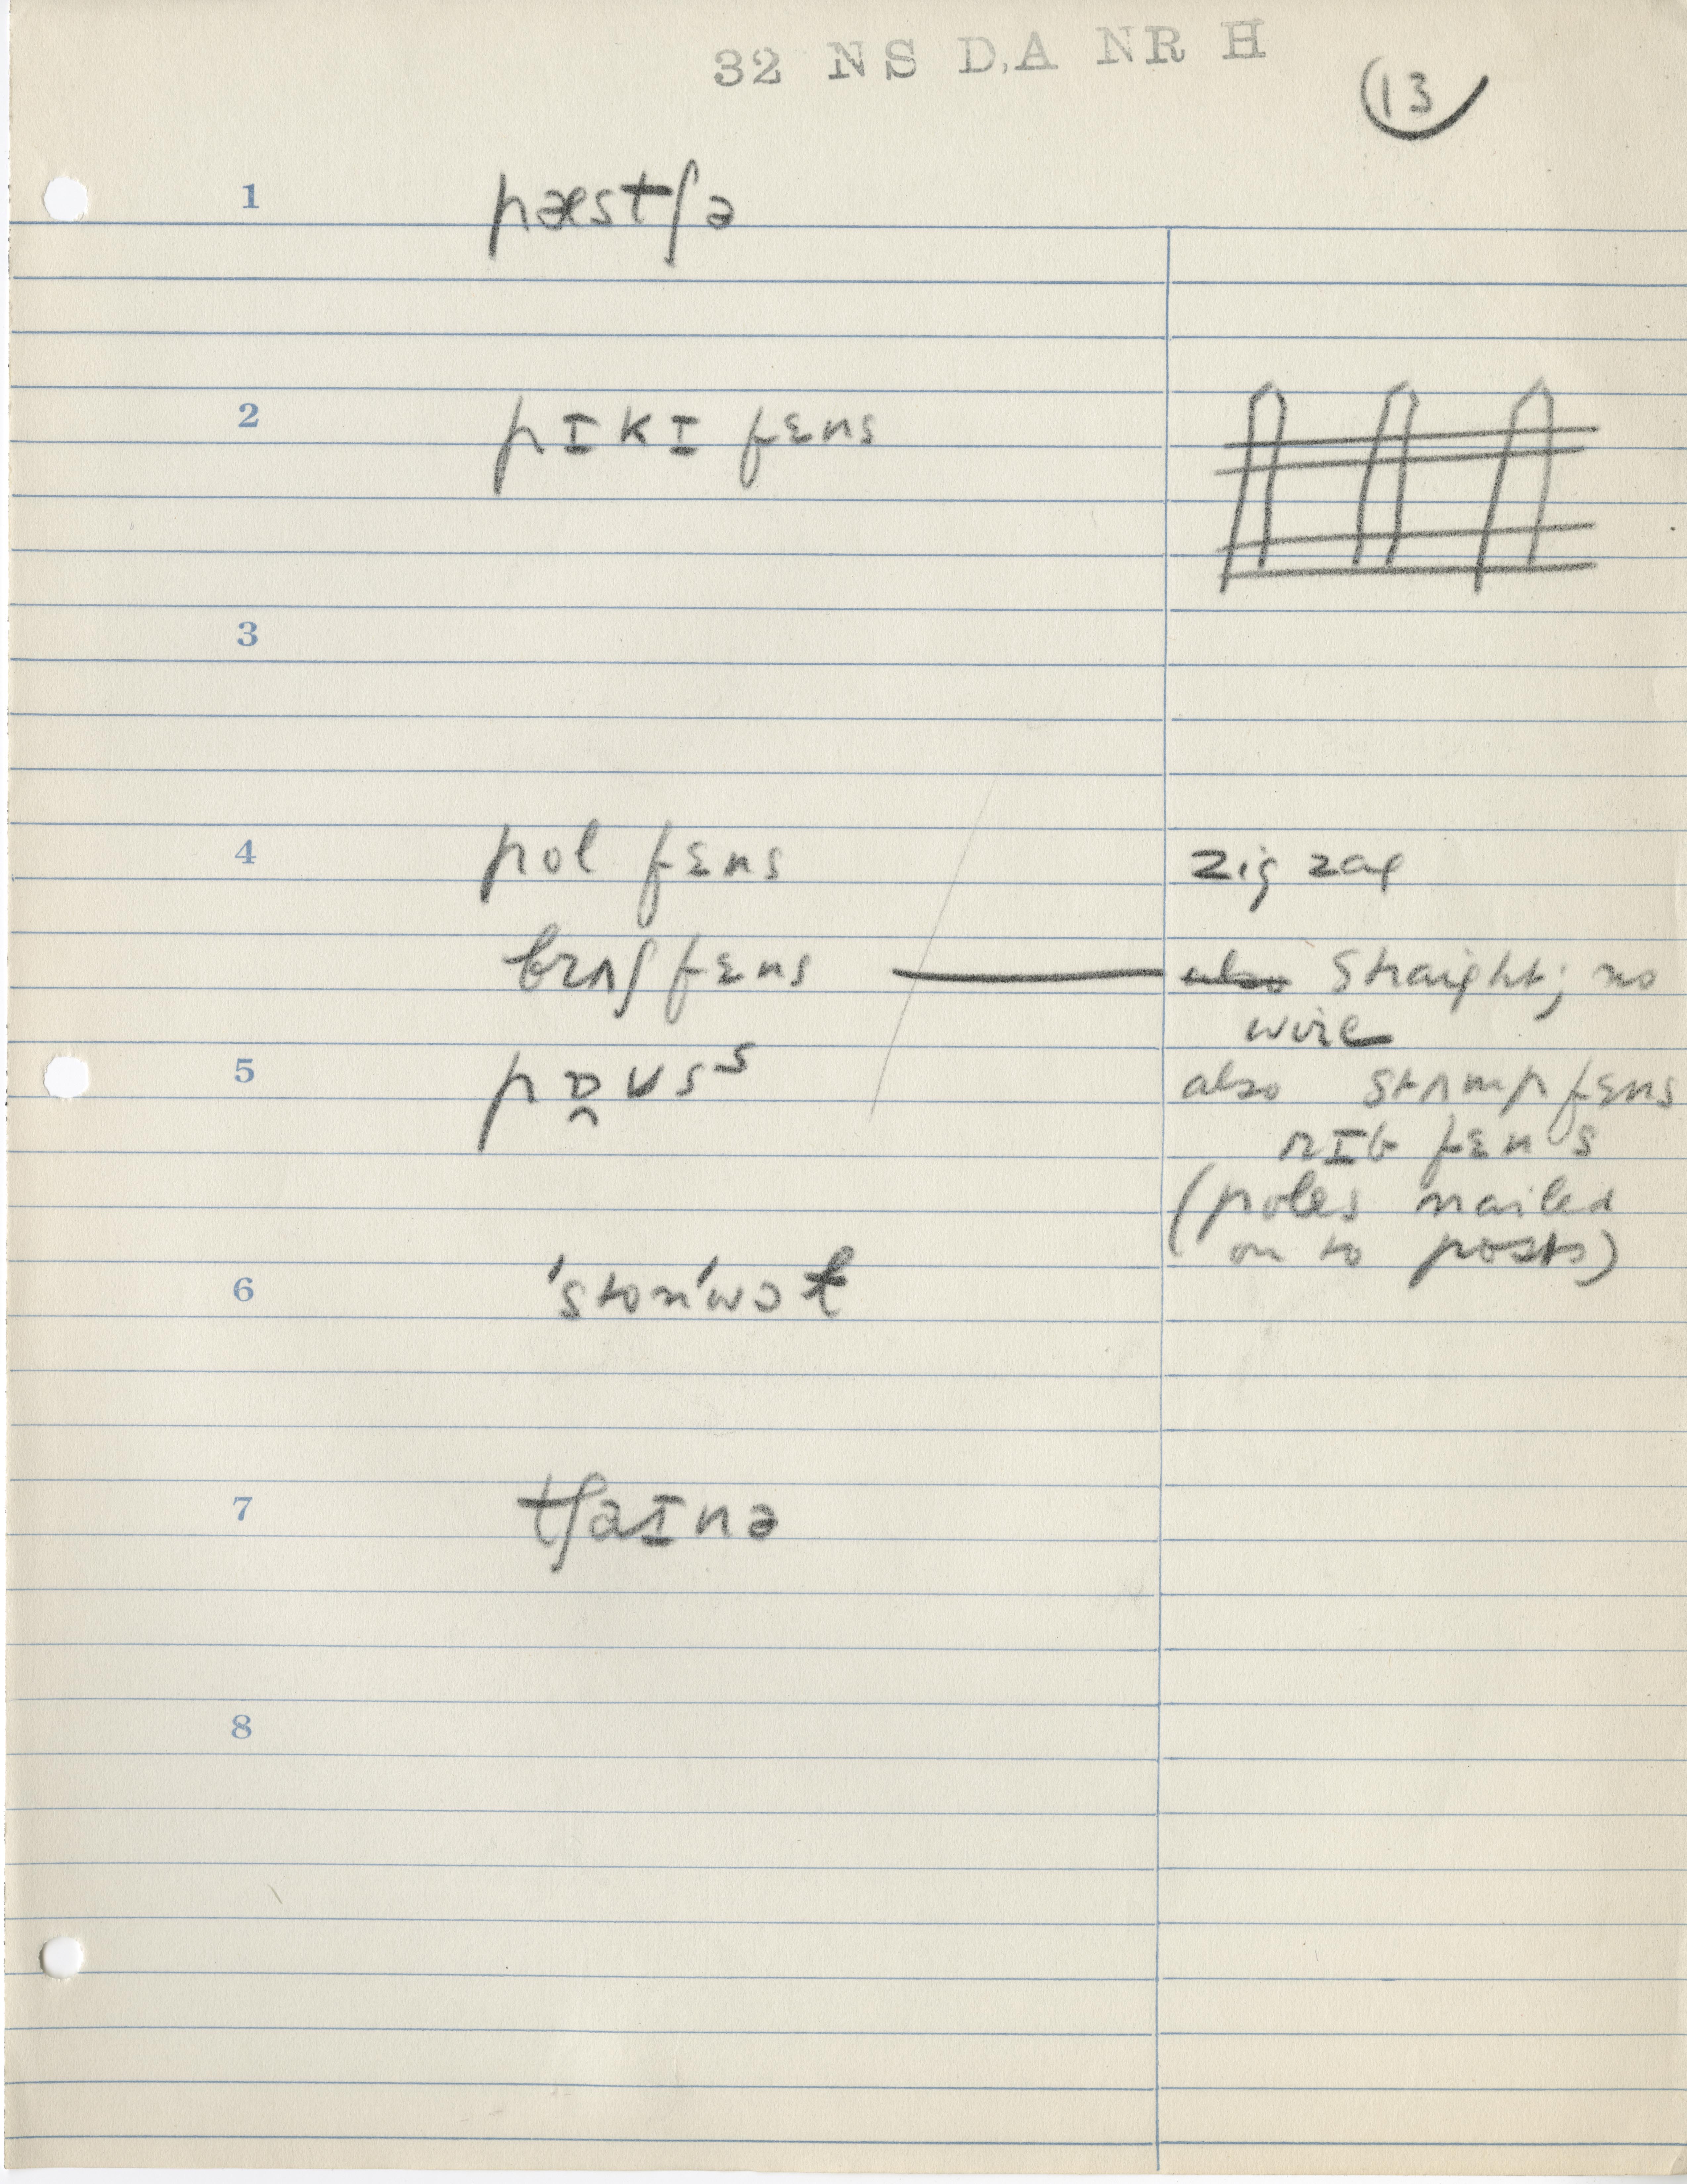 32 NS D.A NR H
13
1 pæstʃə
2 pɪkɪ fɛns
3
4 pol fɛns zig zag
brʌʃ fɛns also straight; no
wire
5 also stʌmp fɛns
rɪb fɛns
(poles nailed
on to posts)
6 ˈstonˈwɔɫ
7 tʃaɪnə
8